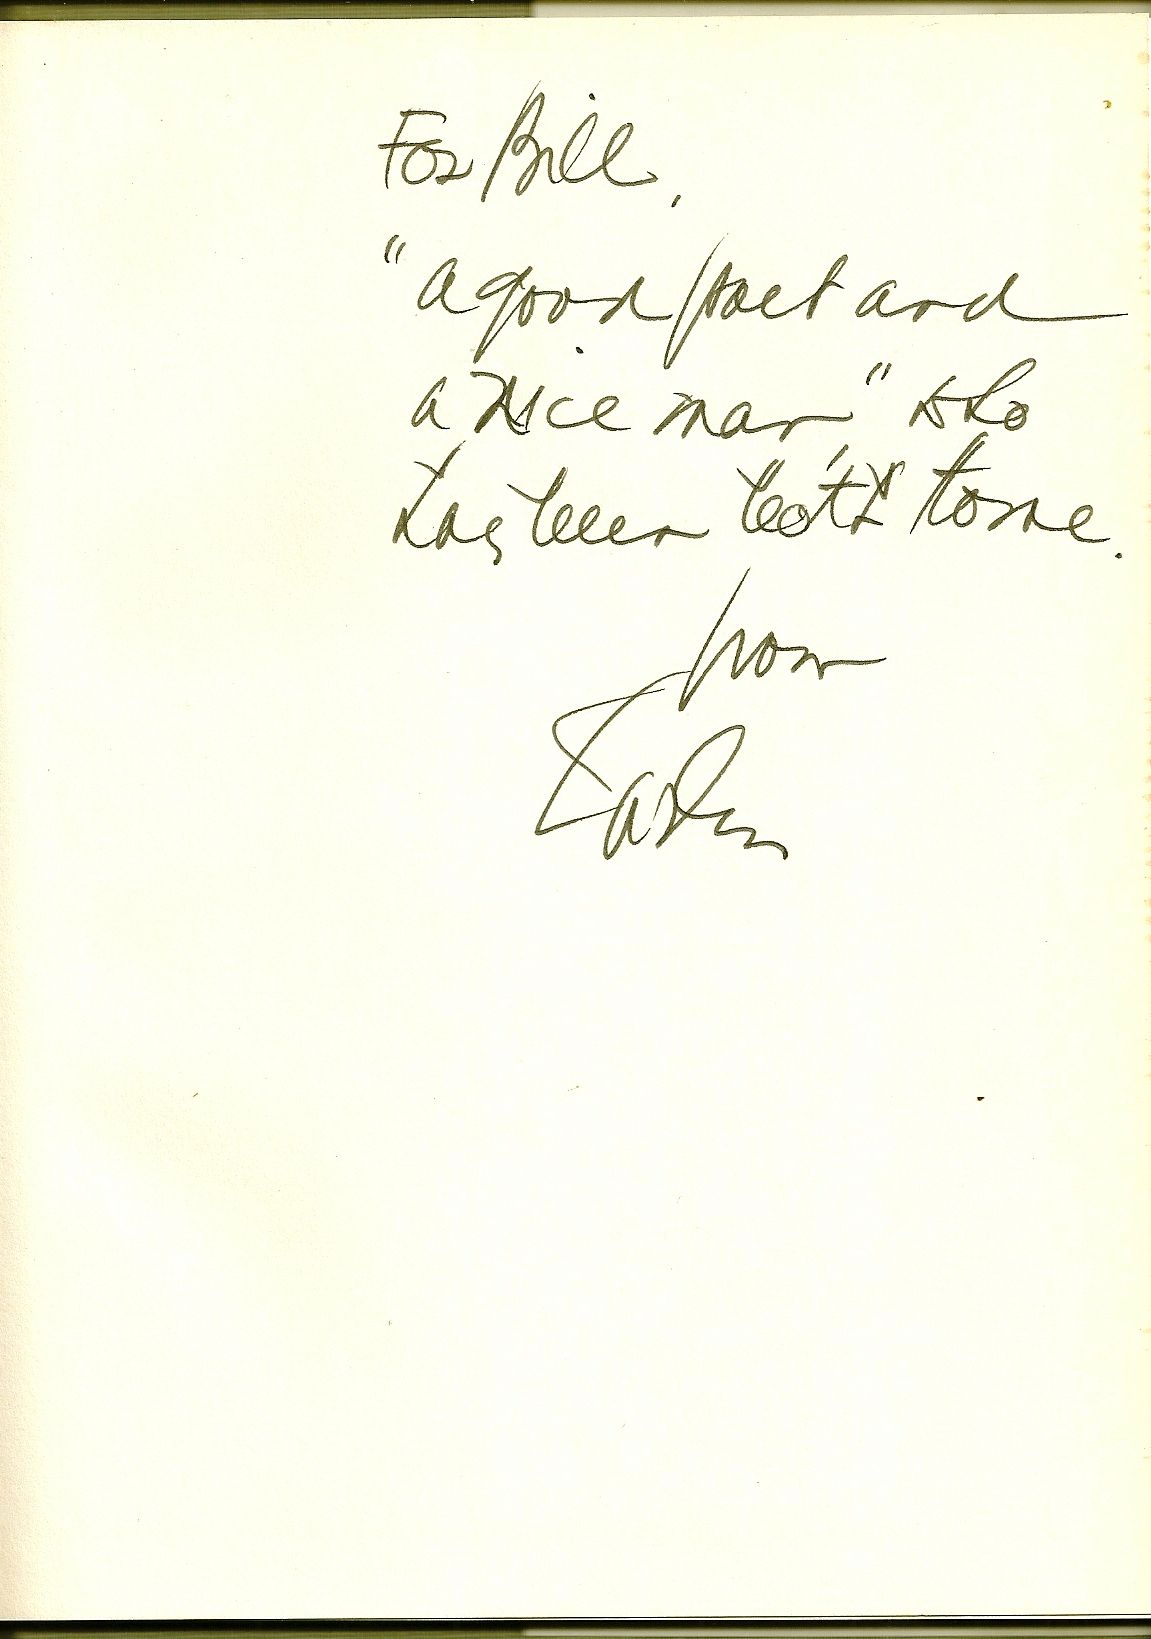 For Bill,
"a good poet and
a nice man," who
has been both to me.
from